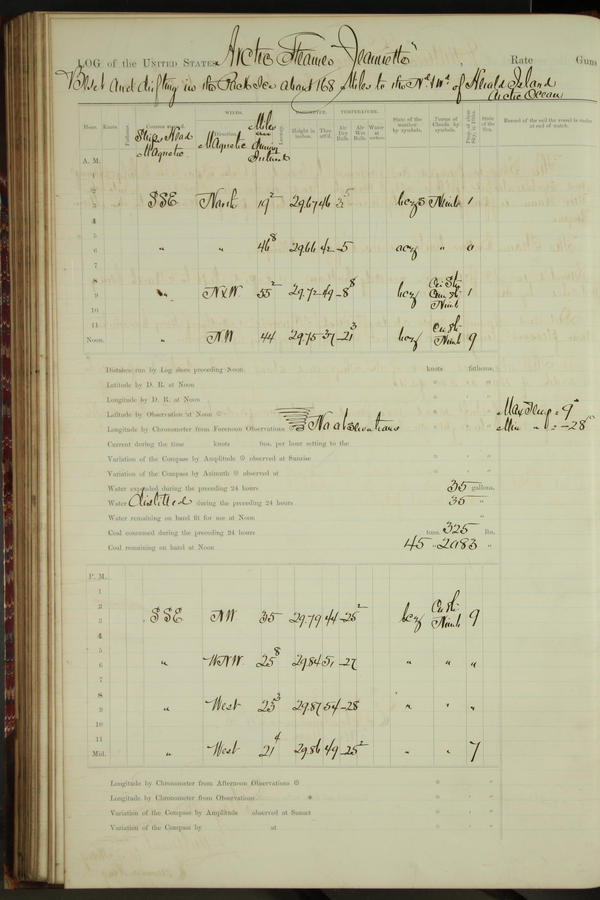 LOG of the UNITED STATES Arctic Steamer "Jeannette", Rate Guns
Beset and drifting in the Pack Ice about 168 Miles to the Nd & Wd of Herald Island
Arctic Ocean
WINDS. BAROMETER. TEMPERATURE.
Hour. Knots Courses steered. Ship's Head Magnetic Direction Magnetic Miles Leeway Height in inches. Ther. att'd. Air Dry Bulb. Air Wet Bulb. Water at surface. State of the weather by symbols. Forms of Clouds by symbols. State of the Sea. Record of the sail the vessel is under at end of watch.
A. M.
1
2
3 SSE North 19² 29.67 46 bcz Nimb 1
4
5
6 " " 46⁸ 29.66 42 -5 " 0
7
8
9 " NNW 55² 29.72 49 -8⁸ bcz Cir St. Cum St. Nimb 1
10
11
Noon. " NW 44 29.75 37 -21³ bcz Cu St. Nimb 9
Distance run by Log since preceding Noon knots fathoms.
Latitude by D. R. at Noon
Longitude by D. R. at Noon
Latitude by Observation at Noon Max Temp = 9°
Longitude by Chronometer from Forenoon Observations No observations Min " = -28°
Current during the time knots fms. per hour setting to the
Variation of the Compass by Amplitude observed at Sunrise
Variation of the Compass by Azimuth observed at
Water expended during the preceding 24 hours 35 gallons.
Water distilled during the preceding 24 hours 35 "
Water remaining on hand fit for use at Noon
Coal consumed during the preceding 24 hours tons. 325 lbs.
Coal remaining on hand at Noon 45 " 2083 "
P. M.
1
2
3 SSE NW 35 29.79 44 -25² bcz Cu St. Nimb 9
4
5
6 " WNW 25⁸ 29.84 51 -27 " " "
7
8
9 " West 23³ 29.87 54 -28 " " "
10
11
Mid. " West 21⁴ 29.86 49 -25² " " 7
Longitude by Chronometer from Afternoon Observations
Longitude by Chronometer from Observations
Variation of the Compass by Amplitude observed at Sunset
Variation of the Compass by at